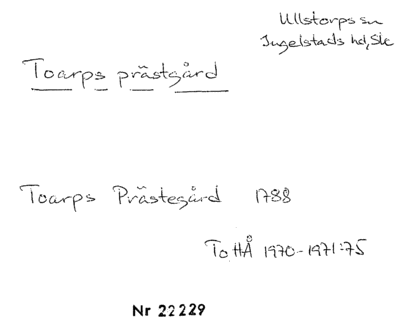 Ullstorps sn
Ingelstads hd, Sk
Toarps prästgård
Toarps Prästegård 1788
To HÅ 1970-1971:75
Nr 22229